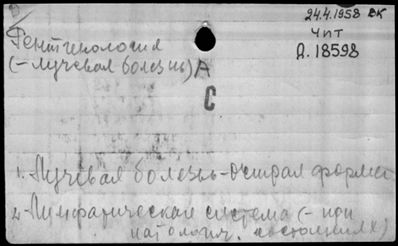 24.4.1958 ВК
Рентгенология
(-лучевая болезнь) А
Чпт
Д. 18598
С
1. Лучевая болезнь - острая форма
2. Лимфатическая система (- при
патологич. состояниях)